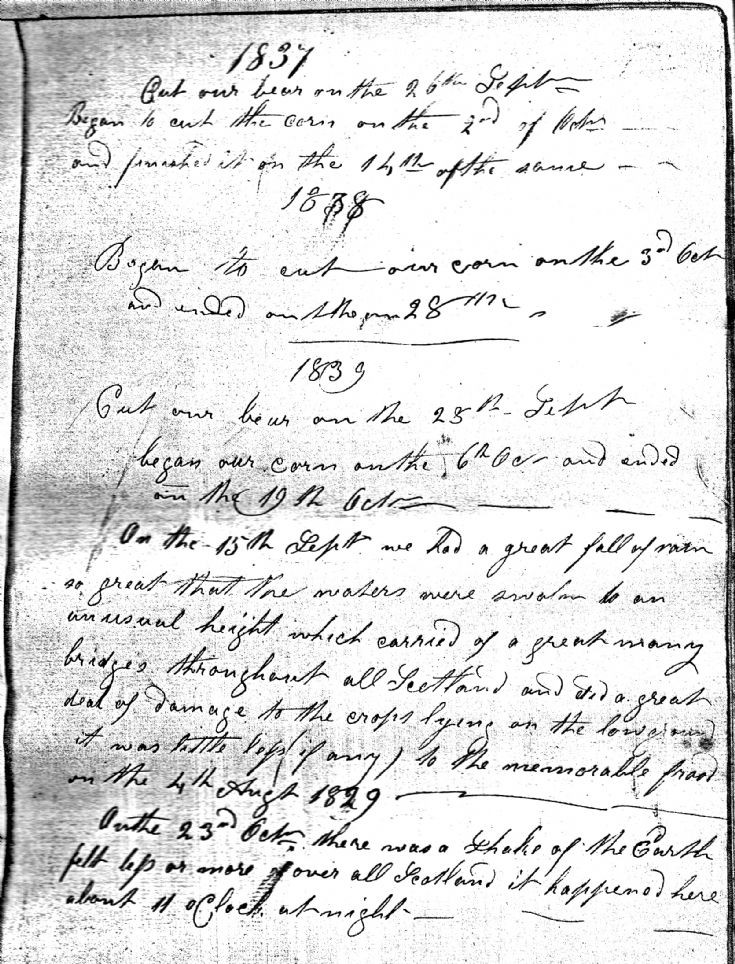 1837
Cut our bear on the 26th Sept
Began to cut the corn on the 2nd of Octr
and finished it on the 14th of the same
1838
Began to cut our corn on the 3rd Oct
and ended on the 28th
1839
Cut our bear on the 25th Sept
began our corn on the 6th Oct and ended
on the 19th Octr
On the 15th Sept we had a great fall of rain
so great that the waters were swoln to an
unusual height which carried of a great many
bridges throughout all Scotland and did a great
deal of damage to the crops lying on the low ground
it was little less (if any) to the memorable flood
on the 4th Augt 1829
On the 23rd Octr there was a shake of the Earth
felt less or more over all Scotland it happened here
about 11 oClock at night